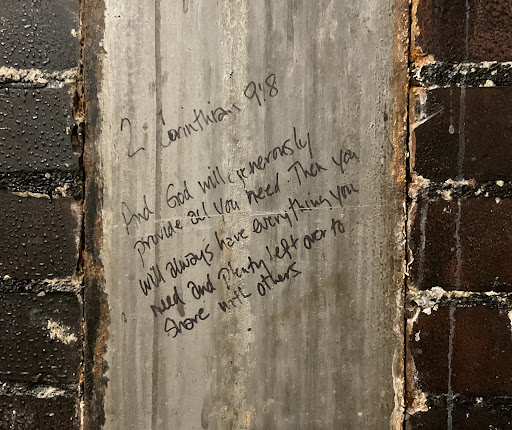 2 Corinthians 9:8
And God will generously
provide all you need. Then you
will always have everything you
need and plenty left over to
share with others